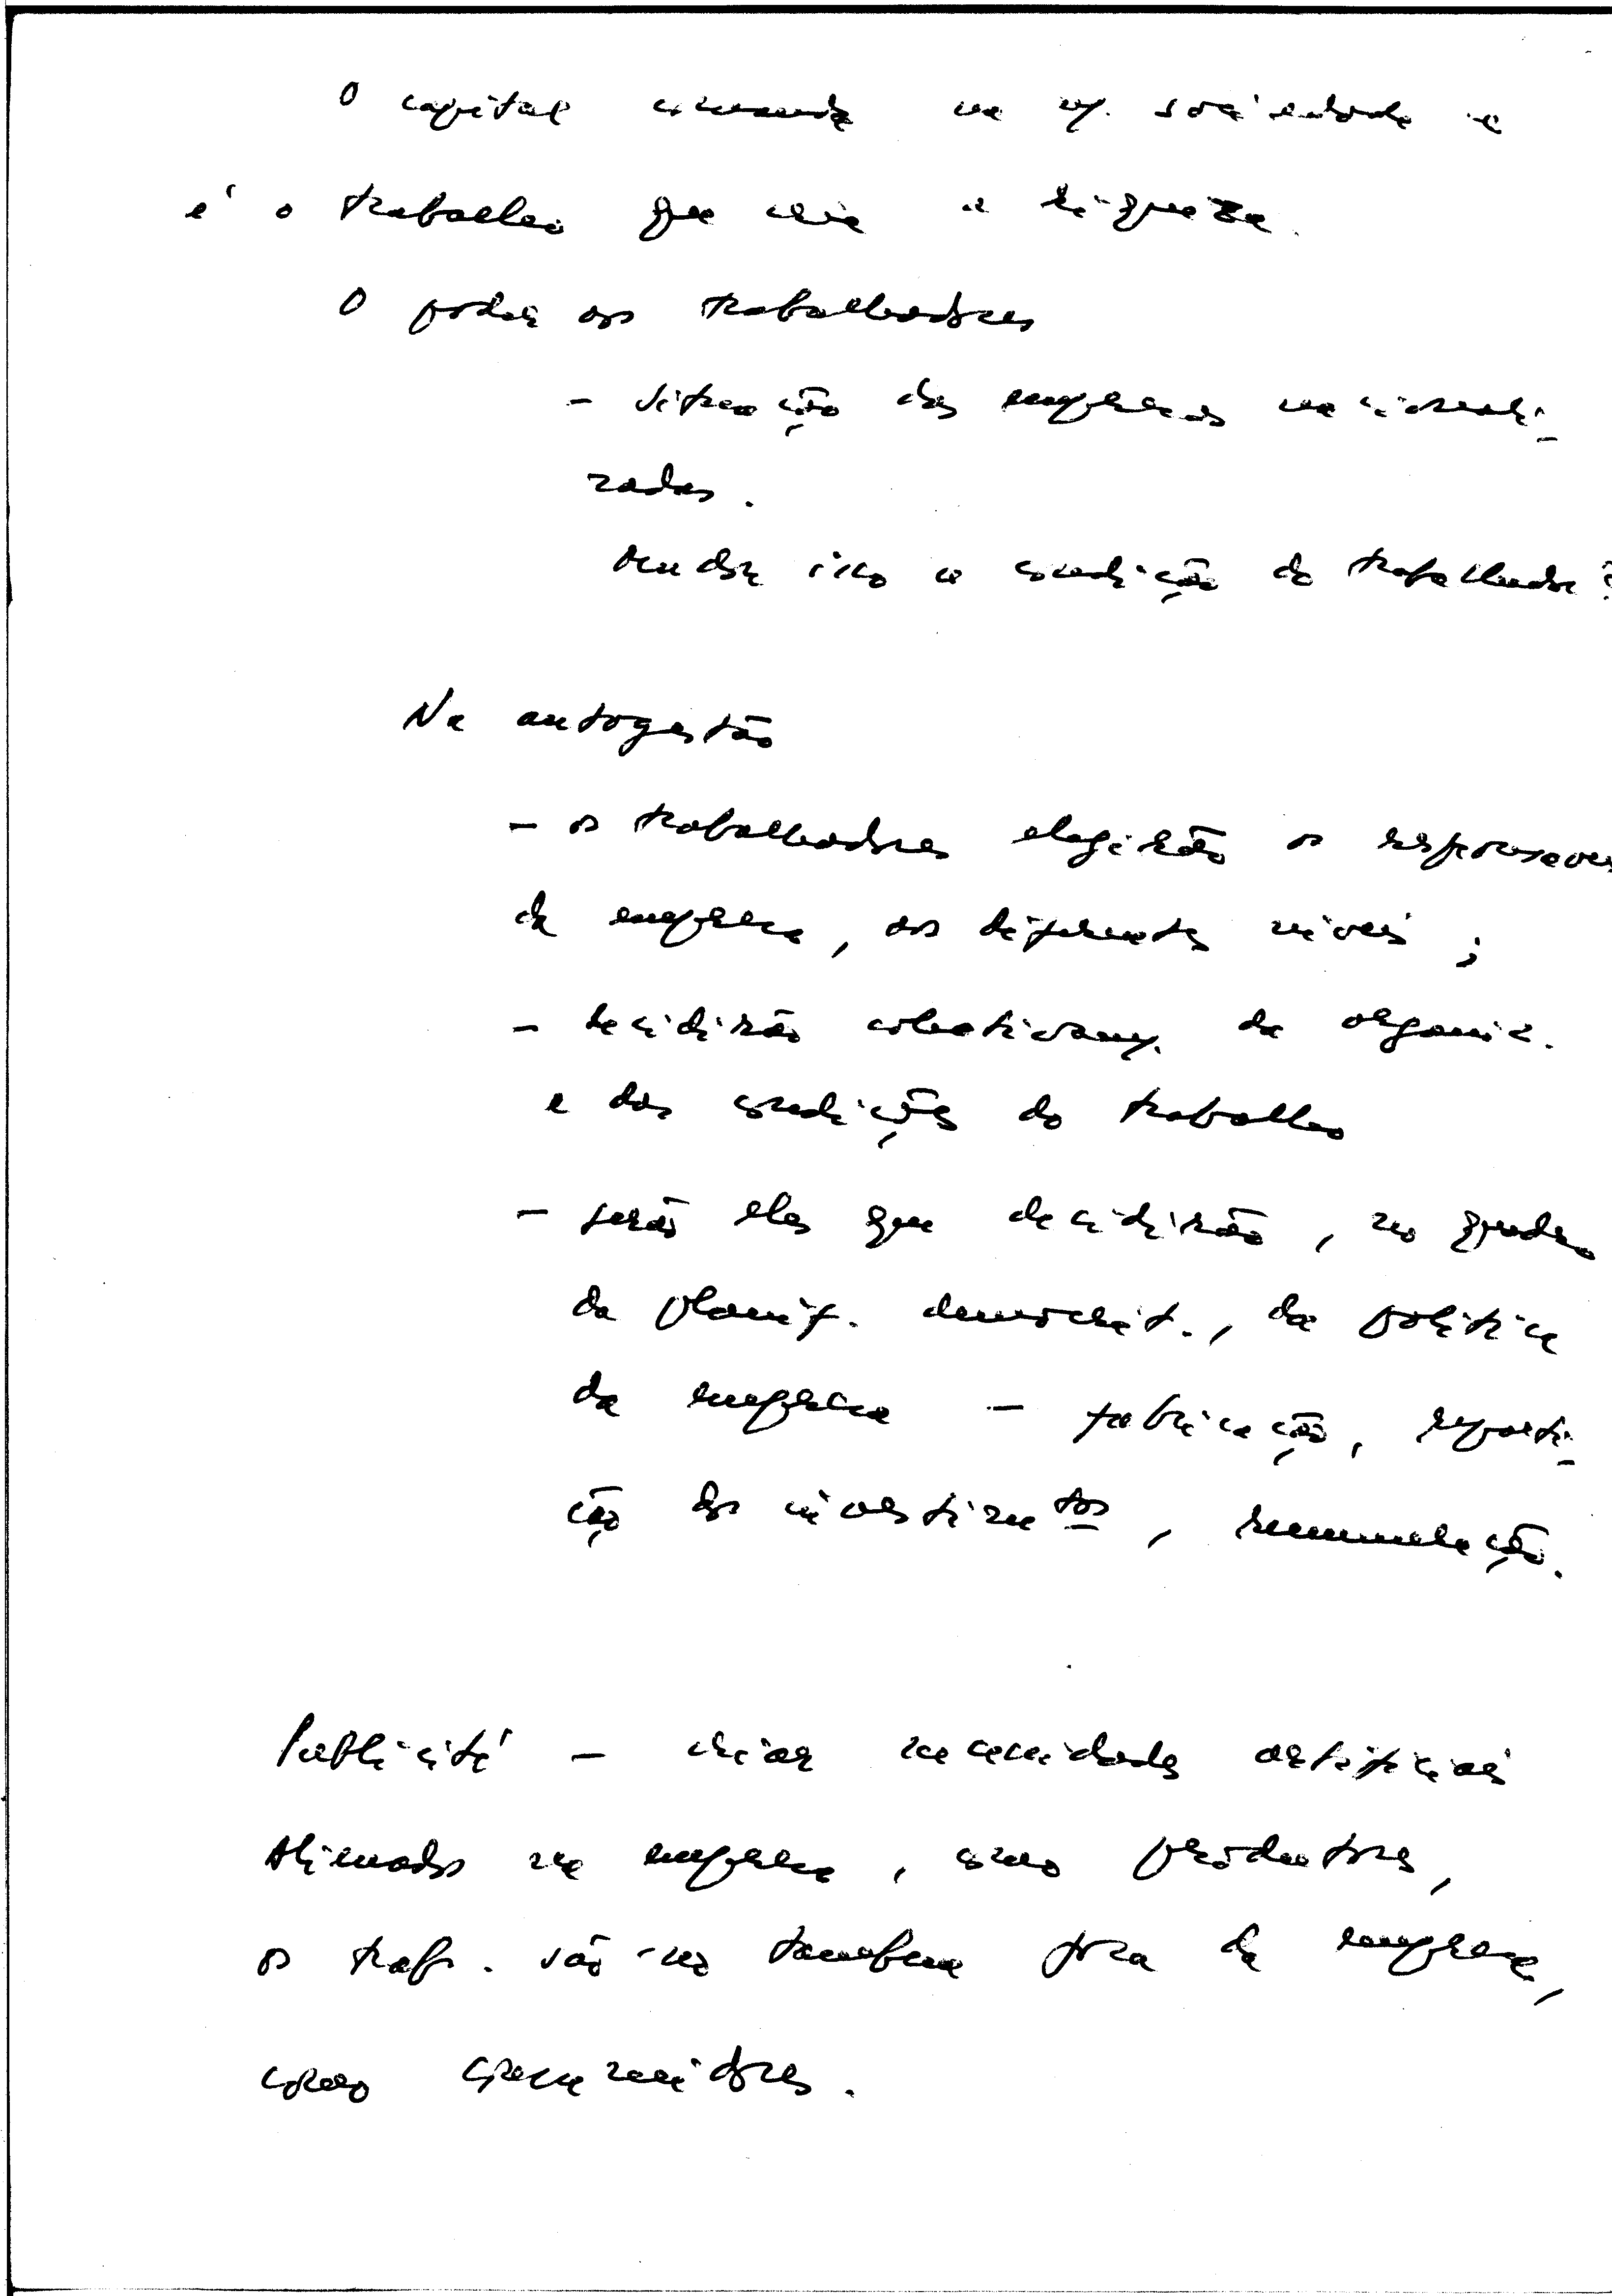 O capital comanda na n/. sociedade e
é o trabalho que cria a riqueza.
O poder aos trabalhadores
- situação das empresas nacionali-
zadas.
Mudou isso a condição do trabalhador?
Na autogestão
- os trabalhadores elegirão os responsaveis
da empresa, aos diferentes niveis;
- decidirão colectivam/. da organiz.
e das condições do trabalho
- serão eles que decidirão, no quadro
da planif. democrát., da politica
da empresa - fabricação, reparti-
ção dos investimentos, remuneração.
Publicité - criar necessidades artificiais
Alienados na empresa, como productores,
os trab. são-no tambem fora da empresa,
como consumidores.